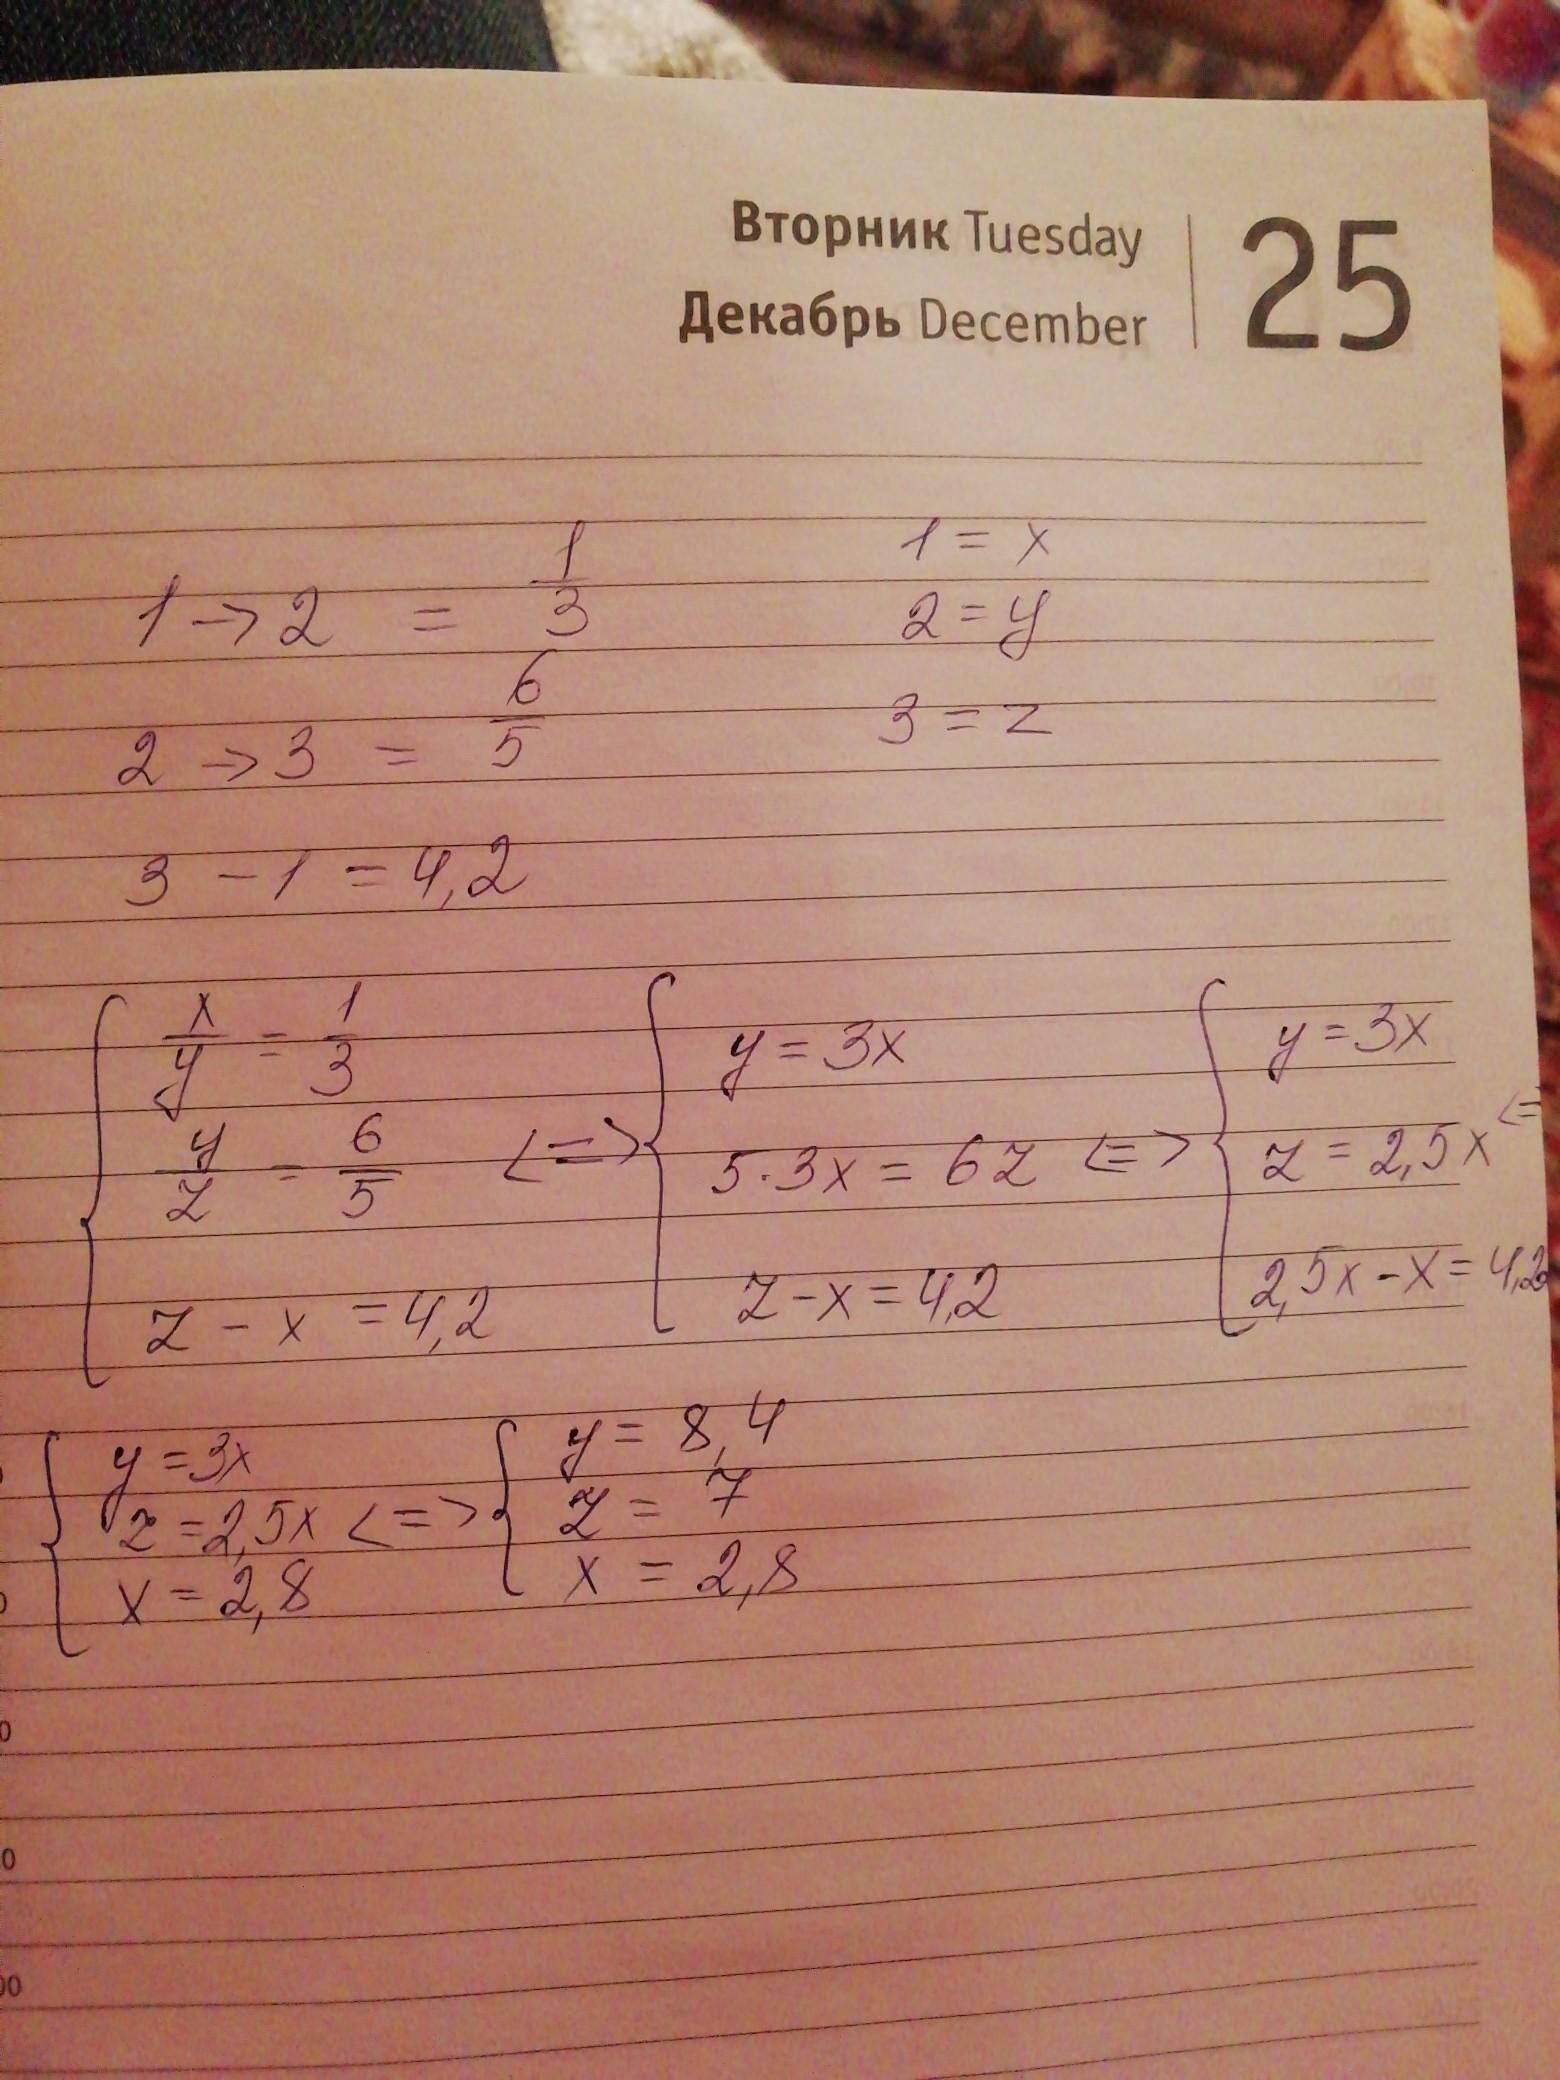 Вторник Tuesday
Декабрь December
25
1 → 2 = 1/3
1 = x
2 = y
2 → 3 = 6/5
3 = z
3 - 1 = 4,2
x/y = 1/3
y/z = 6/5
z - x = 4,2
<=>
y = 3x
5·3x = 6z
z - x = 4,2
<=>
y = 3x
z = 2,5x <=
2,5x - x = 4,2
y = 3x
z = 2,5x
x = 2,8
<=>
y = 8,4
z = 7
x = 2,8